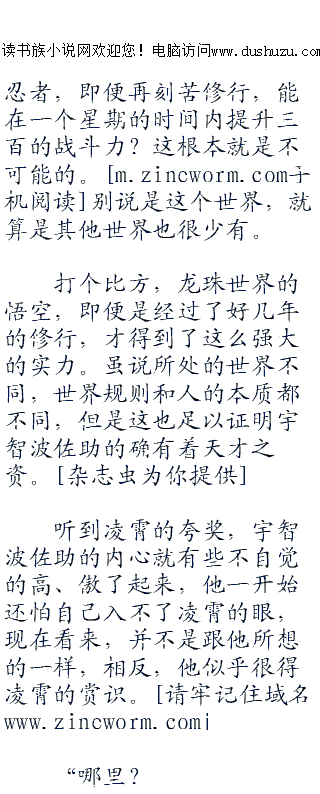 读书族小说网欢迎您！电脑访问www.dushuzu.com
忍者，即便再刻苦修行，能
在一个星期的时间内提升三
百的战斗力？这根本就是不
可能的。[m.zincworm.com手
机阅读]别说是这个世界，就
算是其他世界也很少有。
打个比方，龙珠世界的
悟空，即便是经过了好几年
的修行，才得到了这么强大
的实力。虽说所处的世界不
同，世界规则和人的本质都
不同，但是这也足以证明宇
智波佐助的确有着天才之
资。[杂志虫为你提供]
听到凌霄的夸奖，宇智
波佐助的内心就有些不自觉
的高、傲了起来，他一开始
还怕自己入不了凌霄的眼，
现在看来，并不是跟他所想
的一样，相反，他似乎很得
凌霄的赏识。[请牢记住域名
www.zincworm.com]
“哪里？